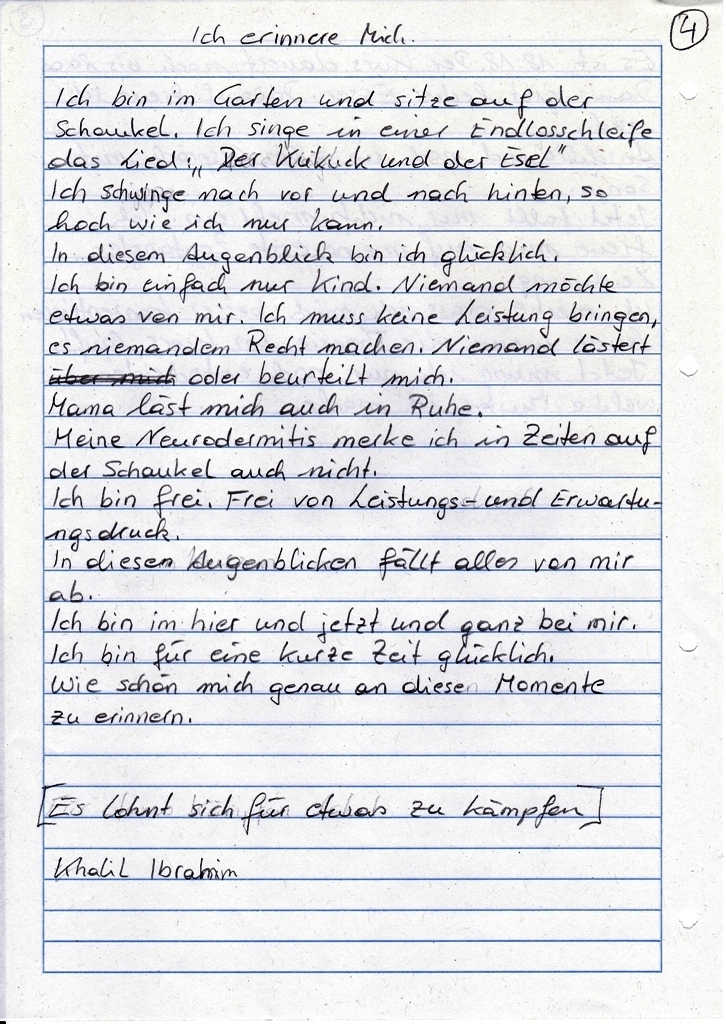 Ich erinnere Mich.
4
Ich bin im Garten und sitze auf der
Schaukel. Ich singe in einer Endlosschleife
das Lied: „Der Kukuck und der Esel"
Ich schwinge nach vor und nach hinten, so
hoch wie ich nur kann.
In diesem Augenblick bin ich glücklich.
Ich bin einfach nur Kind. Niemand möchte
etwas von mir. Ich muss keine Leistung bringen,
es niemandem Recht machen. Niemand lästert
über mich oder beurteilt mich.
Mama läst mich auch in Ruhe.
Meine Neurodermitis merke ich in Zeiten auf
der Schaukel auch nicht.
Ich bin frei. Frei von Leistungs- und Erwartu-
ngsdruck.
In diesen Augenblicken fällt alles von mir
ab.
Ich bin im hier und jetzt und ganz bei mir.
Ich bin für eine kurze Zeit glücklich.
Wie schön mich genau an diesen Momente
zu erinnern.
[Es lohnt sich für etwas zu kämpfen]
Khalil Ibrahim